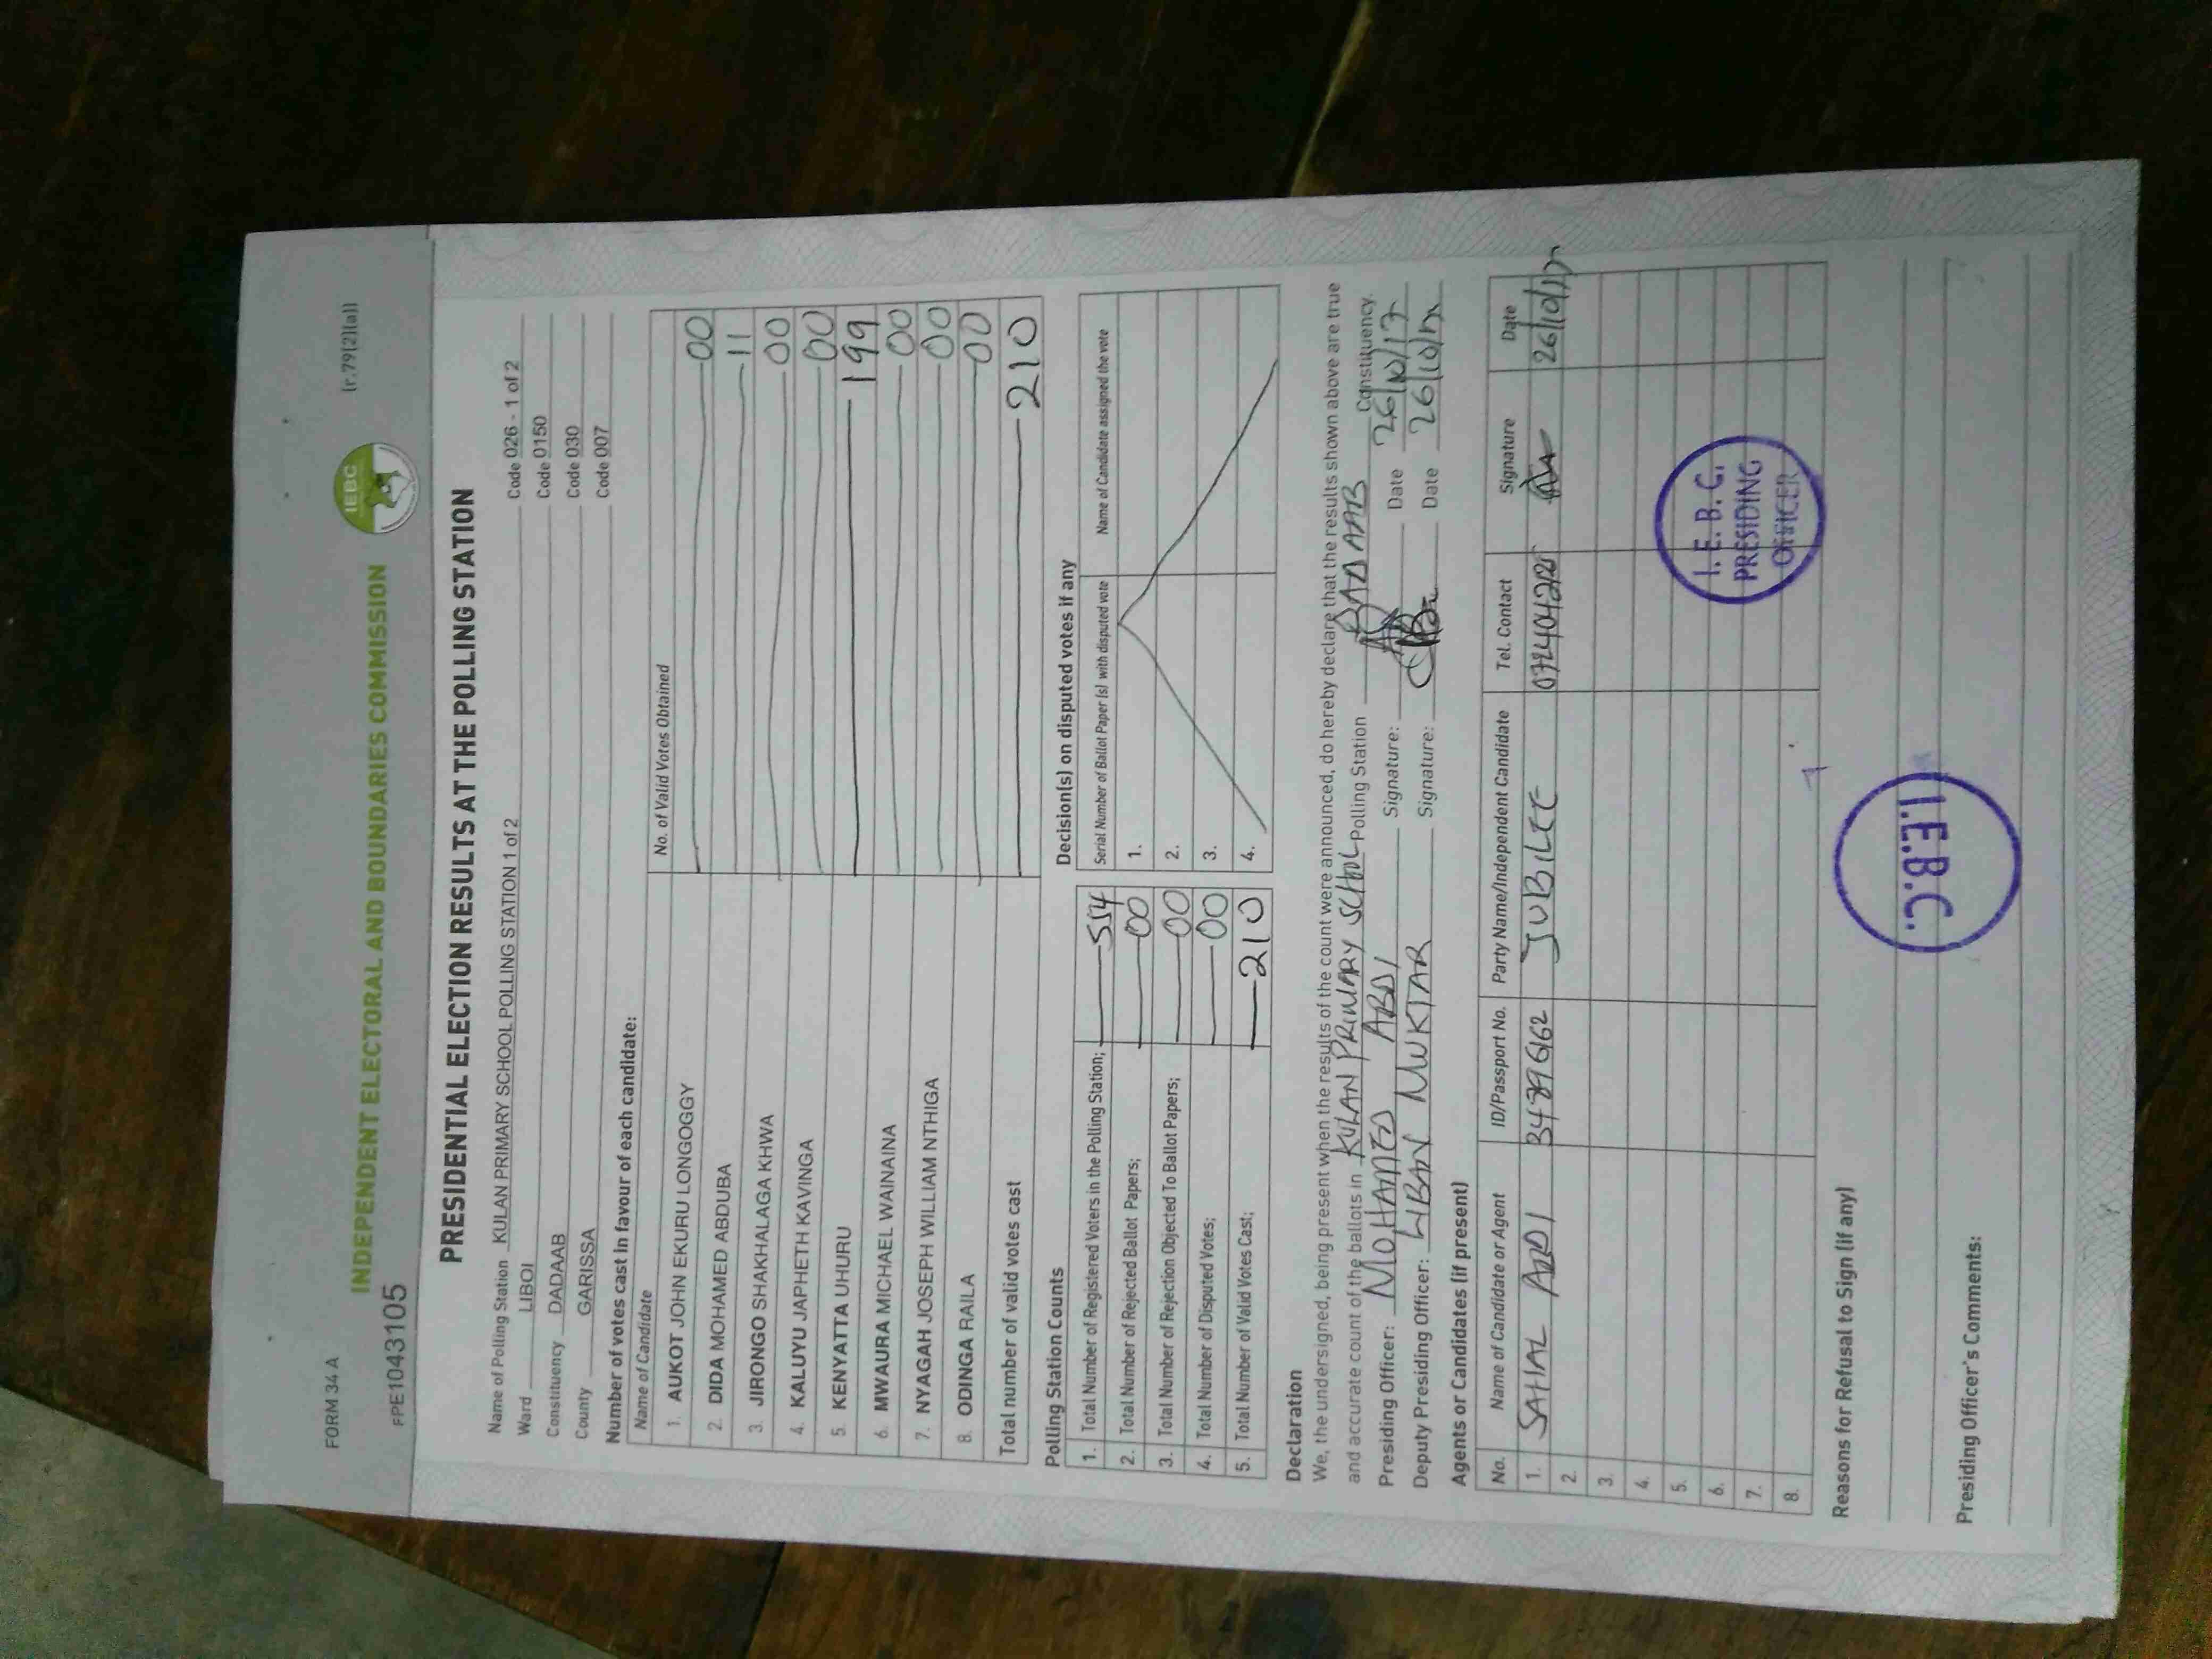 FORM 34 A
(r.79(2)(a))
IEBC
INDEPENDENT ELECTORAL AND BOUNDARIES COMMISSION
FPE1043105
PRESIDENTIAL ELECTION RESULTS AT THE POLLING STATION
Name of Polling Station KULAN PRIMARY SCHOOL POLLING STATION 1 of 2 Code 026 - 1 of 2
Ward LIBOI Code 0150
Constituency DADAAB Code 030
County GARISSA Code 007
Number of votes cast in favour of each candidate:
Name of Candidate No. of Valid Votes Obtained
1. AUKOT JOHN EKURU LONGOGGY 00
2. DIDA MOHAMED ABDUBA 11
3. JIRONGO SHAKHALAGA KHWA 00
4. KALUYU JAPHETH KAVINGA 00
5. KENYATTA UHURU 199
6. MWAURA MICHAEL WAINAINA 00
7. NYAGAH JOSEPH WILLIAM NTHIGA 00
8. ODINGA RAILA 00
Total number of valid votes cast 210
Polling Station Counts
1. Total Number of Registered Voters in the Polling Station; 514
2. Total Number of Rejected Ballot Papers; 00
3. Total Number of Rejection Objected To Ballot Papers; 00
4. Total Number of Disputed Votes; 00
5. Total Number of Valid Votes Cast; 210
Decision(s) on disputed votes if any
Serial Number of Ballot Paper (s) with disputed vote Name of Candidate assigned the vote
1.
2.
3.
4.
Declaration
We, the undersigned, being present when the results of the count were announced, do hereby declare that the results shown above are true
and accurate count of the ballots in KULAN PRIMARY SCHOOL Polling Station DADAAB Constituency.
Presiding Officer: MOHAMED ABDI Signature: Date 26/10/17
Deputy Presiding Officer: LIBAN MUKTAR Signature: Date 26/10/17
Agents or Candidates (if present)
No. Name of Candidate or Agent ID/Passport No. Party Name/Independent Candidate Tel. Contact Signature Date
1. SAHAL ABDI JUBILEE 26/10/17
2.
3.
4.
5.
6.
7.
8.
I. E. B. C.
PRESIDING
OFFICER
Reasons for Refusal to Sign (if any)
I.E.B.C.
Presiding Officer's Comments: